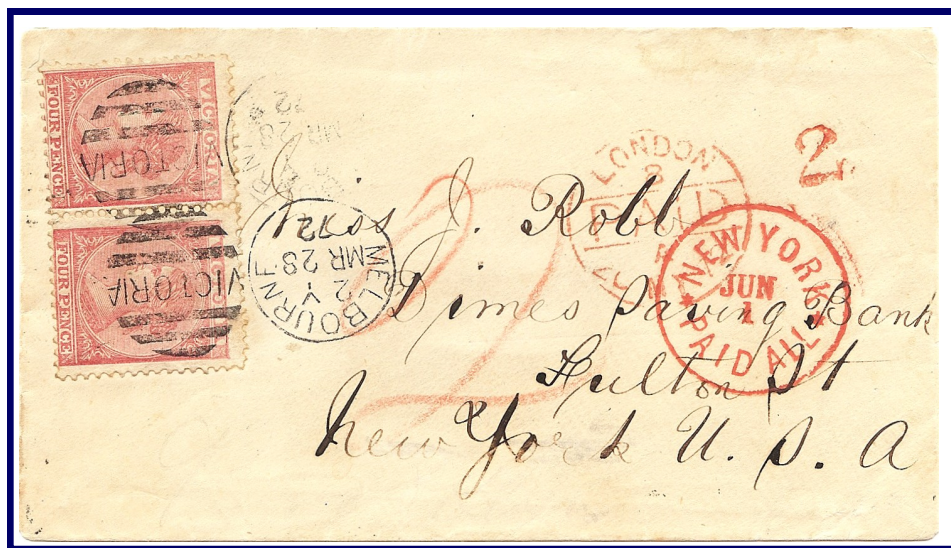 VICTORIA
FOUR PENCE
VICTORIA
FOUR PENCE
VICTORIA
MELBOURNE
2 V
MR 28
72
LONDON
PAID
2
NEW YORK
JUN
1
PAID ALL
2
Miss J. Robb
Dimes Saving Bank
Fulton St
New York U. S. A